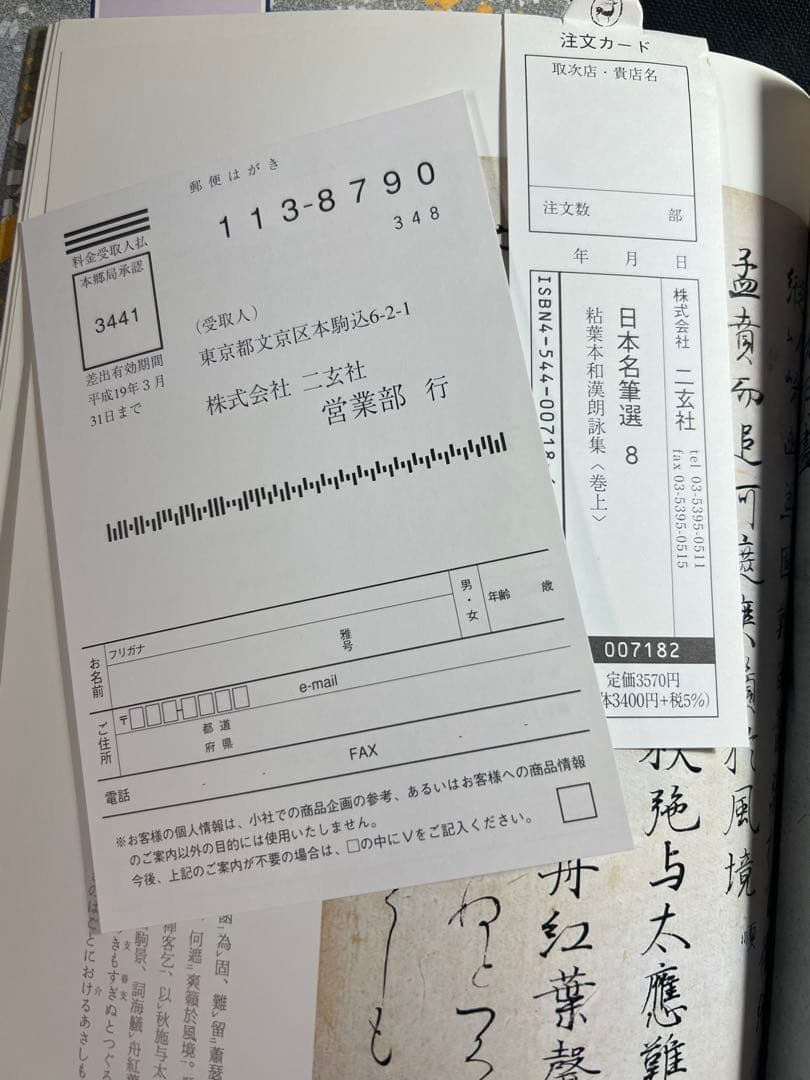 郵便はがき
113-8790
348
料金受取人払
本郷局承認
3441
差出有効期間
平成19年3月
31日まで
(受取人)
東京都文京区本駒込6-2-1
株式会社 二玄社
営業部 行
お名前
フリガナ
雅号
男・女
年齢 歳
ご住所
〒
e-mail
都道
府県
電話 - -
FAX - -
※お客様の個人情報は、小社での商品企画の参考、あるいはお客様への商品情報
のご案内以外の目的には使用いたしません。
今後、上記のご案内が不要の場合は、□の中にVをご記入ください。
注文カード
取次店・貴店名
注文数 部
年 月 日
株式会社 二玄社
tel 03-5395-0511
fax 03-5395-0515
日本名筆選 8
粘葉本和漢朗詠集〈巻上〉
ISBN4-544-00718
007182
定価3570円
体3400円+税5%)
孟賁而追何遮爽籟於風境 順
秋施与太應難
舟紅葉馨
ねとつる
しも
為固、難留蕭瑟
何遮爽籟於風境。
禅客乞、以秋施与太
駒景、詞海艤舟紅葉
きもすぎぬとつぐる
のはごとにおけるあさしも